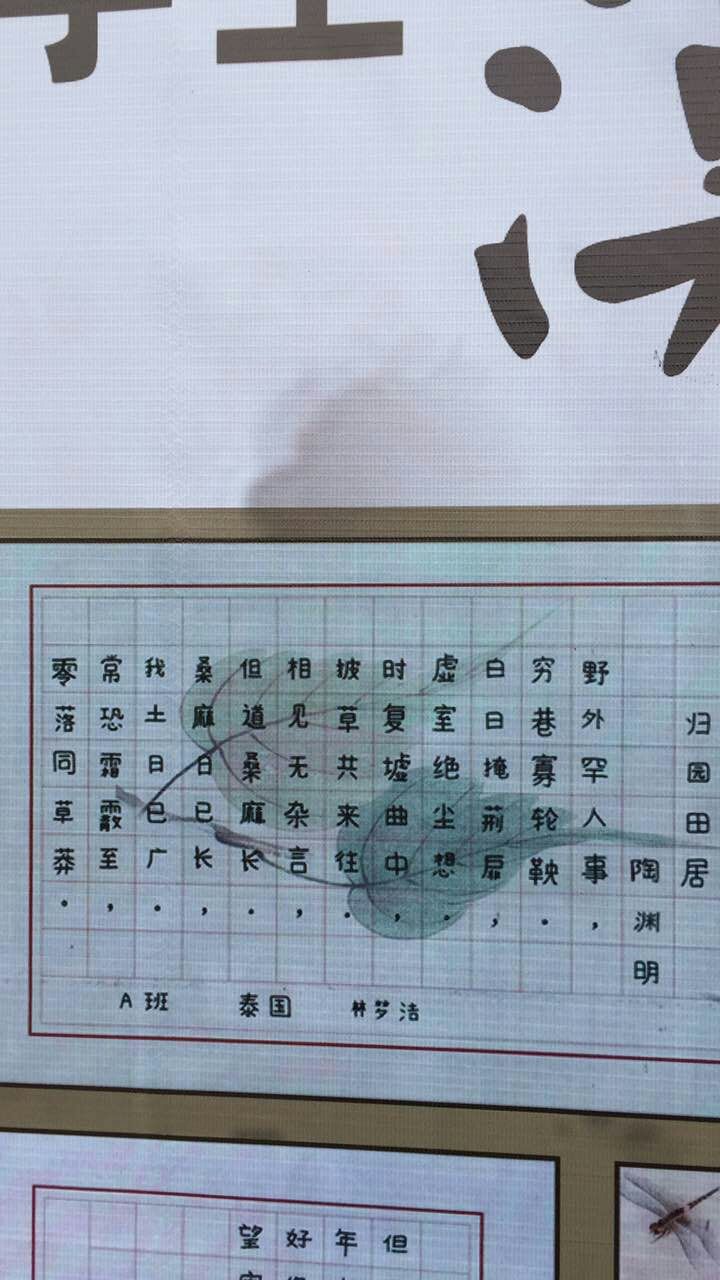 归园田居
陶渊明
野外罕人事，
穷巷寡轮鞅.
白日掩荆扉，
虚室绝尘想.
时复墟曲中，
披草共来往.
相见无杂言，
但道桑麻长.
桑麻日已长，
我土日已广.
常恐霜霰至，
零落同草莽.
A班 泰国 林梦洁
但
年
好
望